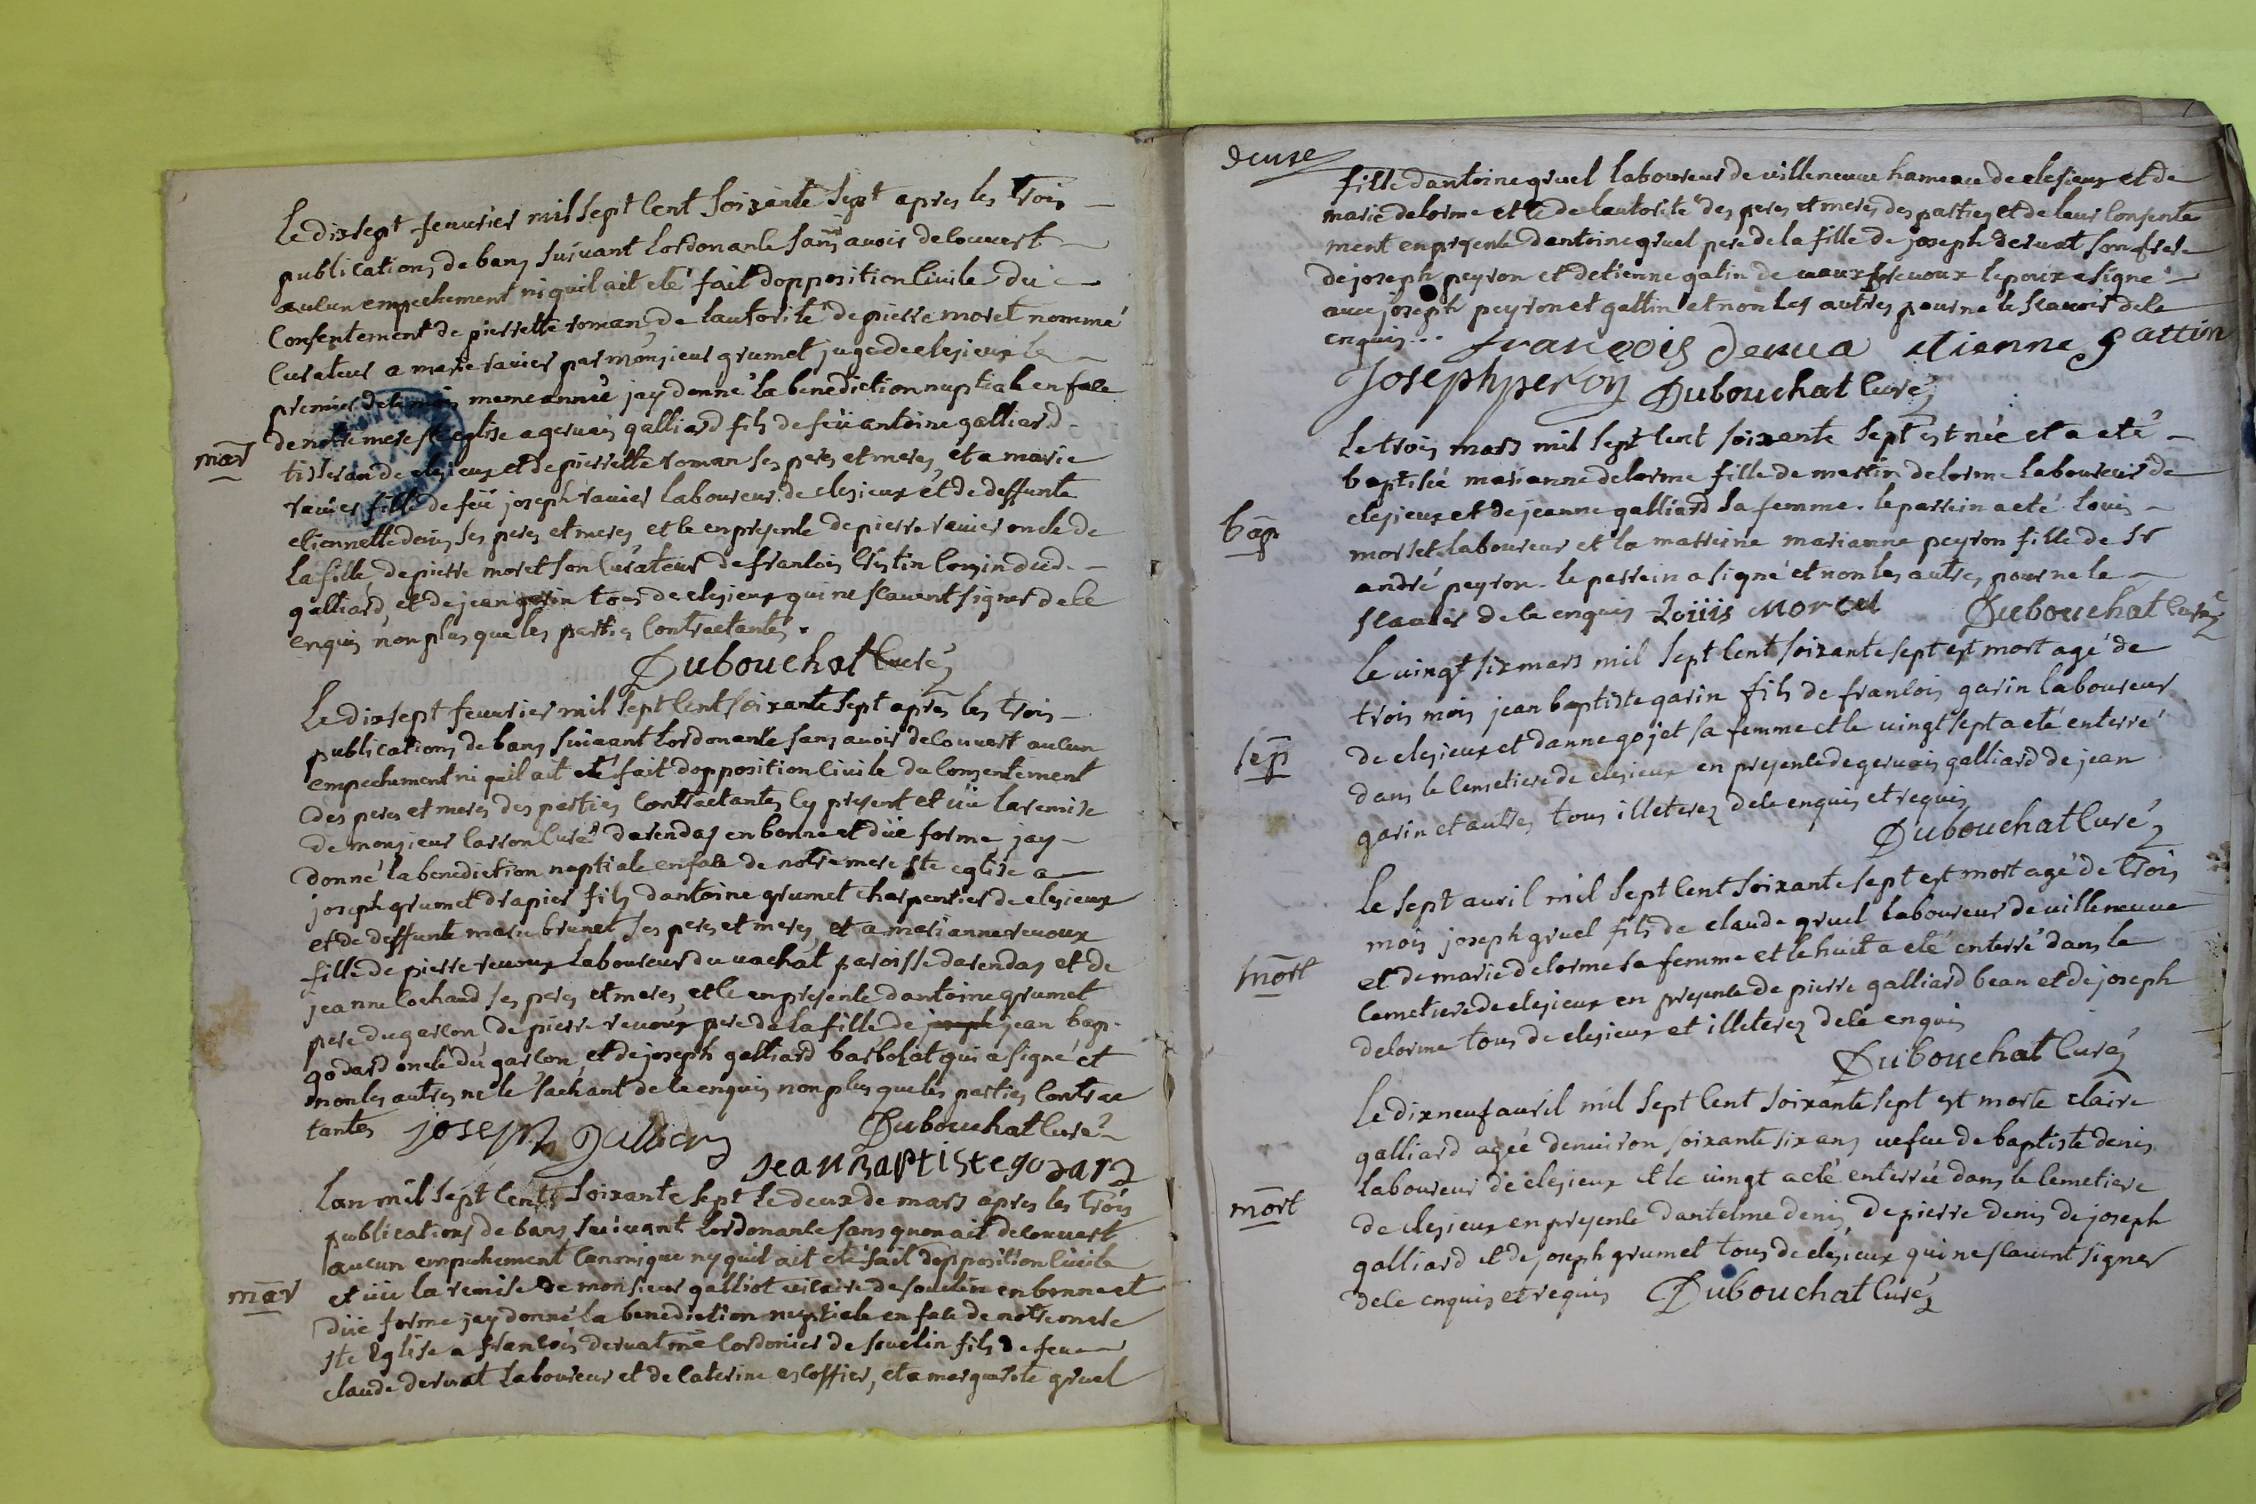 Le dix sept feuvrier mil sept cent soixante sept apres les trois
publications de bans suivant l'ordonance sans avoir decouvert
aucun empechement ni quil ait eté fait dopposition civile du
consentement de pierrette roman, de lautorité de pierre moret nommé
curateur a marie ravier par monsieur grumet juge de clesieux le
premier de meme année jay donné la benediction nuptiale en face
de notre mere ste eglise a gervais galliard fils de feü antoine galliard
mar
tisseran de clesieux et de pierrette roman ses peres et meres, et a marie
ravier fille de feü joseph ravier laboureur de clesieux et de deffunte
etiennette denis ses peres et meres, et ce en presence de pierre ravier oncle de
la fille, de pierre moret son curateur de francois cristin cousin dud.
galliard, et de jean garin tous de clesieux qui ne scavent signer de ce
enquis non plus que les parties contractantes.
Dubouchat curé
Le dix sept feuvrier mil sept cent soixante sept apres les trois
publications de bans suivant l'ordonance sans avoir decouvert aucun
empechement ni quil ait eté fait dopposition civile du consentement
des peres et meres des parties contractantes cy present et vüe la remise
de monsieur carron curé darendas en bonne et düe forme, jay
donné la benediction nuptiale en face de notre mere ste eglise a
joseph grumet drapier fils dantoine grumet charpentier de clesieux
et de deffunte marie brunet ses peres et meres, et a marianne revoux
fille de pierre revoux laboureur du vachat paroisse darendas et de
jeanne cochaud ses peres et meres, et ce en presence dantoine grumet
pere du garcon, de pierre revoux pere de la fille de joseph jean bap.
godard oncle du garcon, et de joseph galliard barbolat qui a signé et
non les autres ne le sachant de ce enquis non plus que les parties contrac
tantes joseph Galliard Dubouchat curé
jean Baptiste godard
Lan mil sept cent soixante sept le deux de mars apres les trois
publications de bans suivant l'ordonance sans quon ait decouvert
aucun empechement canonique ny quil ait eté fait dopposition civile
mar
et vüe la remise de monsieur galliot vicaire de souclin en bonne et
düe forme jay donné la benediction nuptiale en face de notre mere
ste eglise a francois dervat me cordonier de souclin fils de feu
claude dervat laboureur et de caterine escoffier, et a marguerite gruel
deuxe
fille dantoine gruel laboureur de villeneuve hameau de clesieux et de
marie delorme et ce de lautorité des peres et meres des parties et de leur consente
ment en presence dantoine gruel pere de la fille de joseph dervat son frere
de joseph peyron et detienne gatin de vaux fevroux lepoux a signé
avec joseph peyron et gattin et non les autres pour ne le scavoir de ce
enquis.. francois Dervua etienne gattin
Joseph peron Dubouchat curé
Le trois mars mil sept cent soixante sept est née et a eté
baptisée marianne delorme fille de martin delorme laboureur de
bap
clesieux et de jeanne galliard sa femme. le parrein a eté Louis
moret laboureur et la marreine marianne peyron fille de sr
andré peyron. le parrein a signé et non les autres pour ne le
scavoir de ce enquis Louis Moret Dubouchat curé
Le vingt six mars mil sept cent soixante sept est mort agé de
trois mois jean baptiste garin fils de francois garin laboureur
sep
de clesieux et danne gojet sa femme et le vingt sept a eté enterré
dans le cemetiere de clesieux en presence de gervais galliard de jean
garin et autres tous illeterez de ce enquis et requis
Dubouchat curé
Le sept avril mil sept cent soixante sept est mort agé de trois
mois joseph gruel fils de claude gruel laboureur de villeneuve
mort
et de marie delorme sa femme et le huit a eté enterré dans le
cemetiere de clesieux en presence de pierre galliard bean et de joseph
delorme tous de clesieux et illeterez de ce enquis
Dubouchat curé
Le dix neuf avril mil sept cent soixante sept est morte claire
galliard agée denviron soixante six ans vefve de baptiste denis
laboureur de clesieux et le vingt a eté enterrée dans le cemetiere
mort
de clesieux en presence dantelme denis, de pierre denis de joseph
galliard et de joseph grumet tous de clesieux qui ne scavent signer
de ce enquis et requis Dubouchat curé